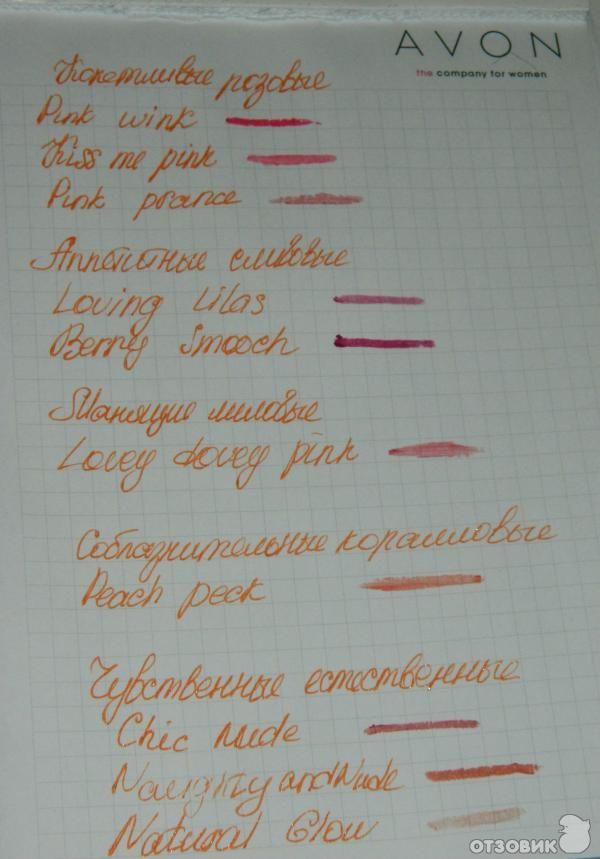 AVON
the company for women
Кокетливые розовые
Pink wink
Kiss me pink
Pink prance
Аппетитные сливовые
Loving Lilas
Berry Smooch
Манящие лиловые
Lovey dovey pink
Соблазнительные коралловые
Peach peck
Чувственные естественные
Chic Nude
Naughty and Nude
Natural Glow
ОТЗОВИК